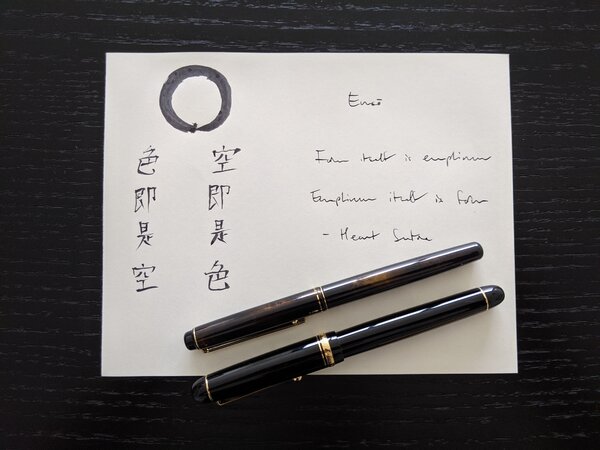 色即是空
空即是色
Ensō
Form itself is emptiness
Emptiness itself is form
- Heart Sutra